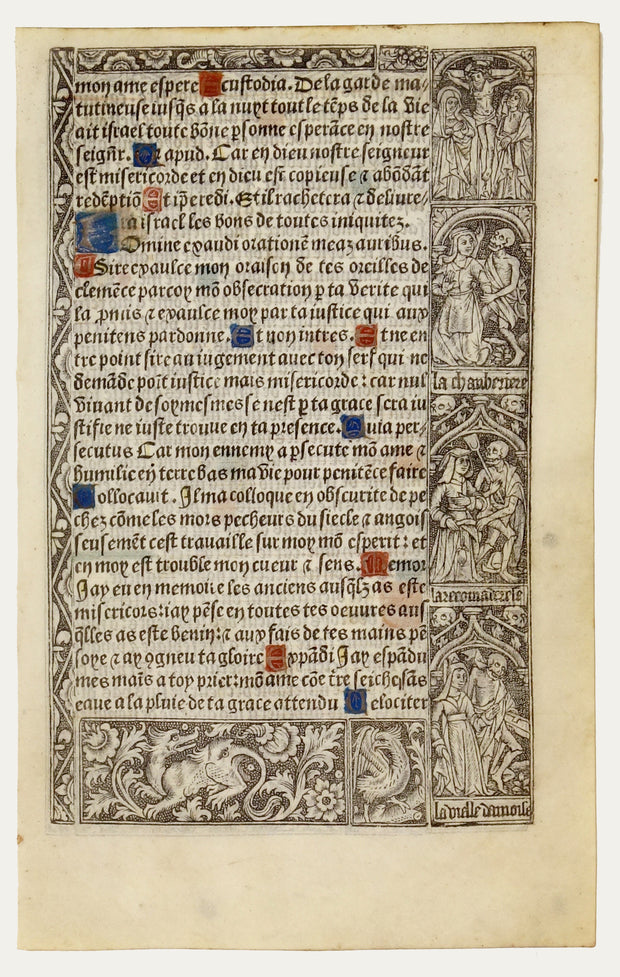 mon ame espere A custodia. De la garde ma-
tutineuse iusqs a la nuyt tout le tẽps de la vie
ait israel toute bõne psonne esperãce en nostre
seigñr. Q apud. Car en dieu nostre seigneur
est misericorde et en dieu est copieuse ⁊ abõdãt
redẽptiõ Et ip̃e redi. Et il rachetera ⁊ deliure-
ra israel les bons de toutes iniquitez.
Domine exaudi orationẽ meaz auribus.
Sire exaulce mon oraison de tes oreilles de
clemẽce parcoy mõ obsecration p ta verite qui
la pmis ⁊ exaulce moy par ta iustice qui aux
penitens pardonne. Et non intres. Et ne en
tre point sire au iugement auec ton serf qui ne
demãde poĩt iustice mais misericorde: car nul
viuant de soymesmes se nest p ta grace sera iu
stifie ne iuste trouue en ta presence. Quia per-
secutus Car mon ennemy a psecute mõ ame ⁊
humilie en terre bas ma vie pour penitẽce faire
Collocauit. Il ma colloque en obscurite de pe
chez cõme les mors pecheurs du siecle ⁊ angois
seusement cest trauaille sur moy mõ esperit: et
en moy est trouble mon cueur ⁊ sens. Memor
Jay eu en memoire les anciens ausqlz as este
misericors: iay pẽse en toutes tes oeuures aus
qlles as este benin: ⁊ aux fais de tes mains pẽ
soye ⁊ ay ꝯgneu ta gloire Expãdi Jay espãdu
mes maĩs a toy prier: mõ ame cõe t̃re seiche sãs
eaue a la pluie de ta grace attendu Uelociter
la chanberiere
la recõmãderesse
la vielle damoise